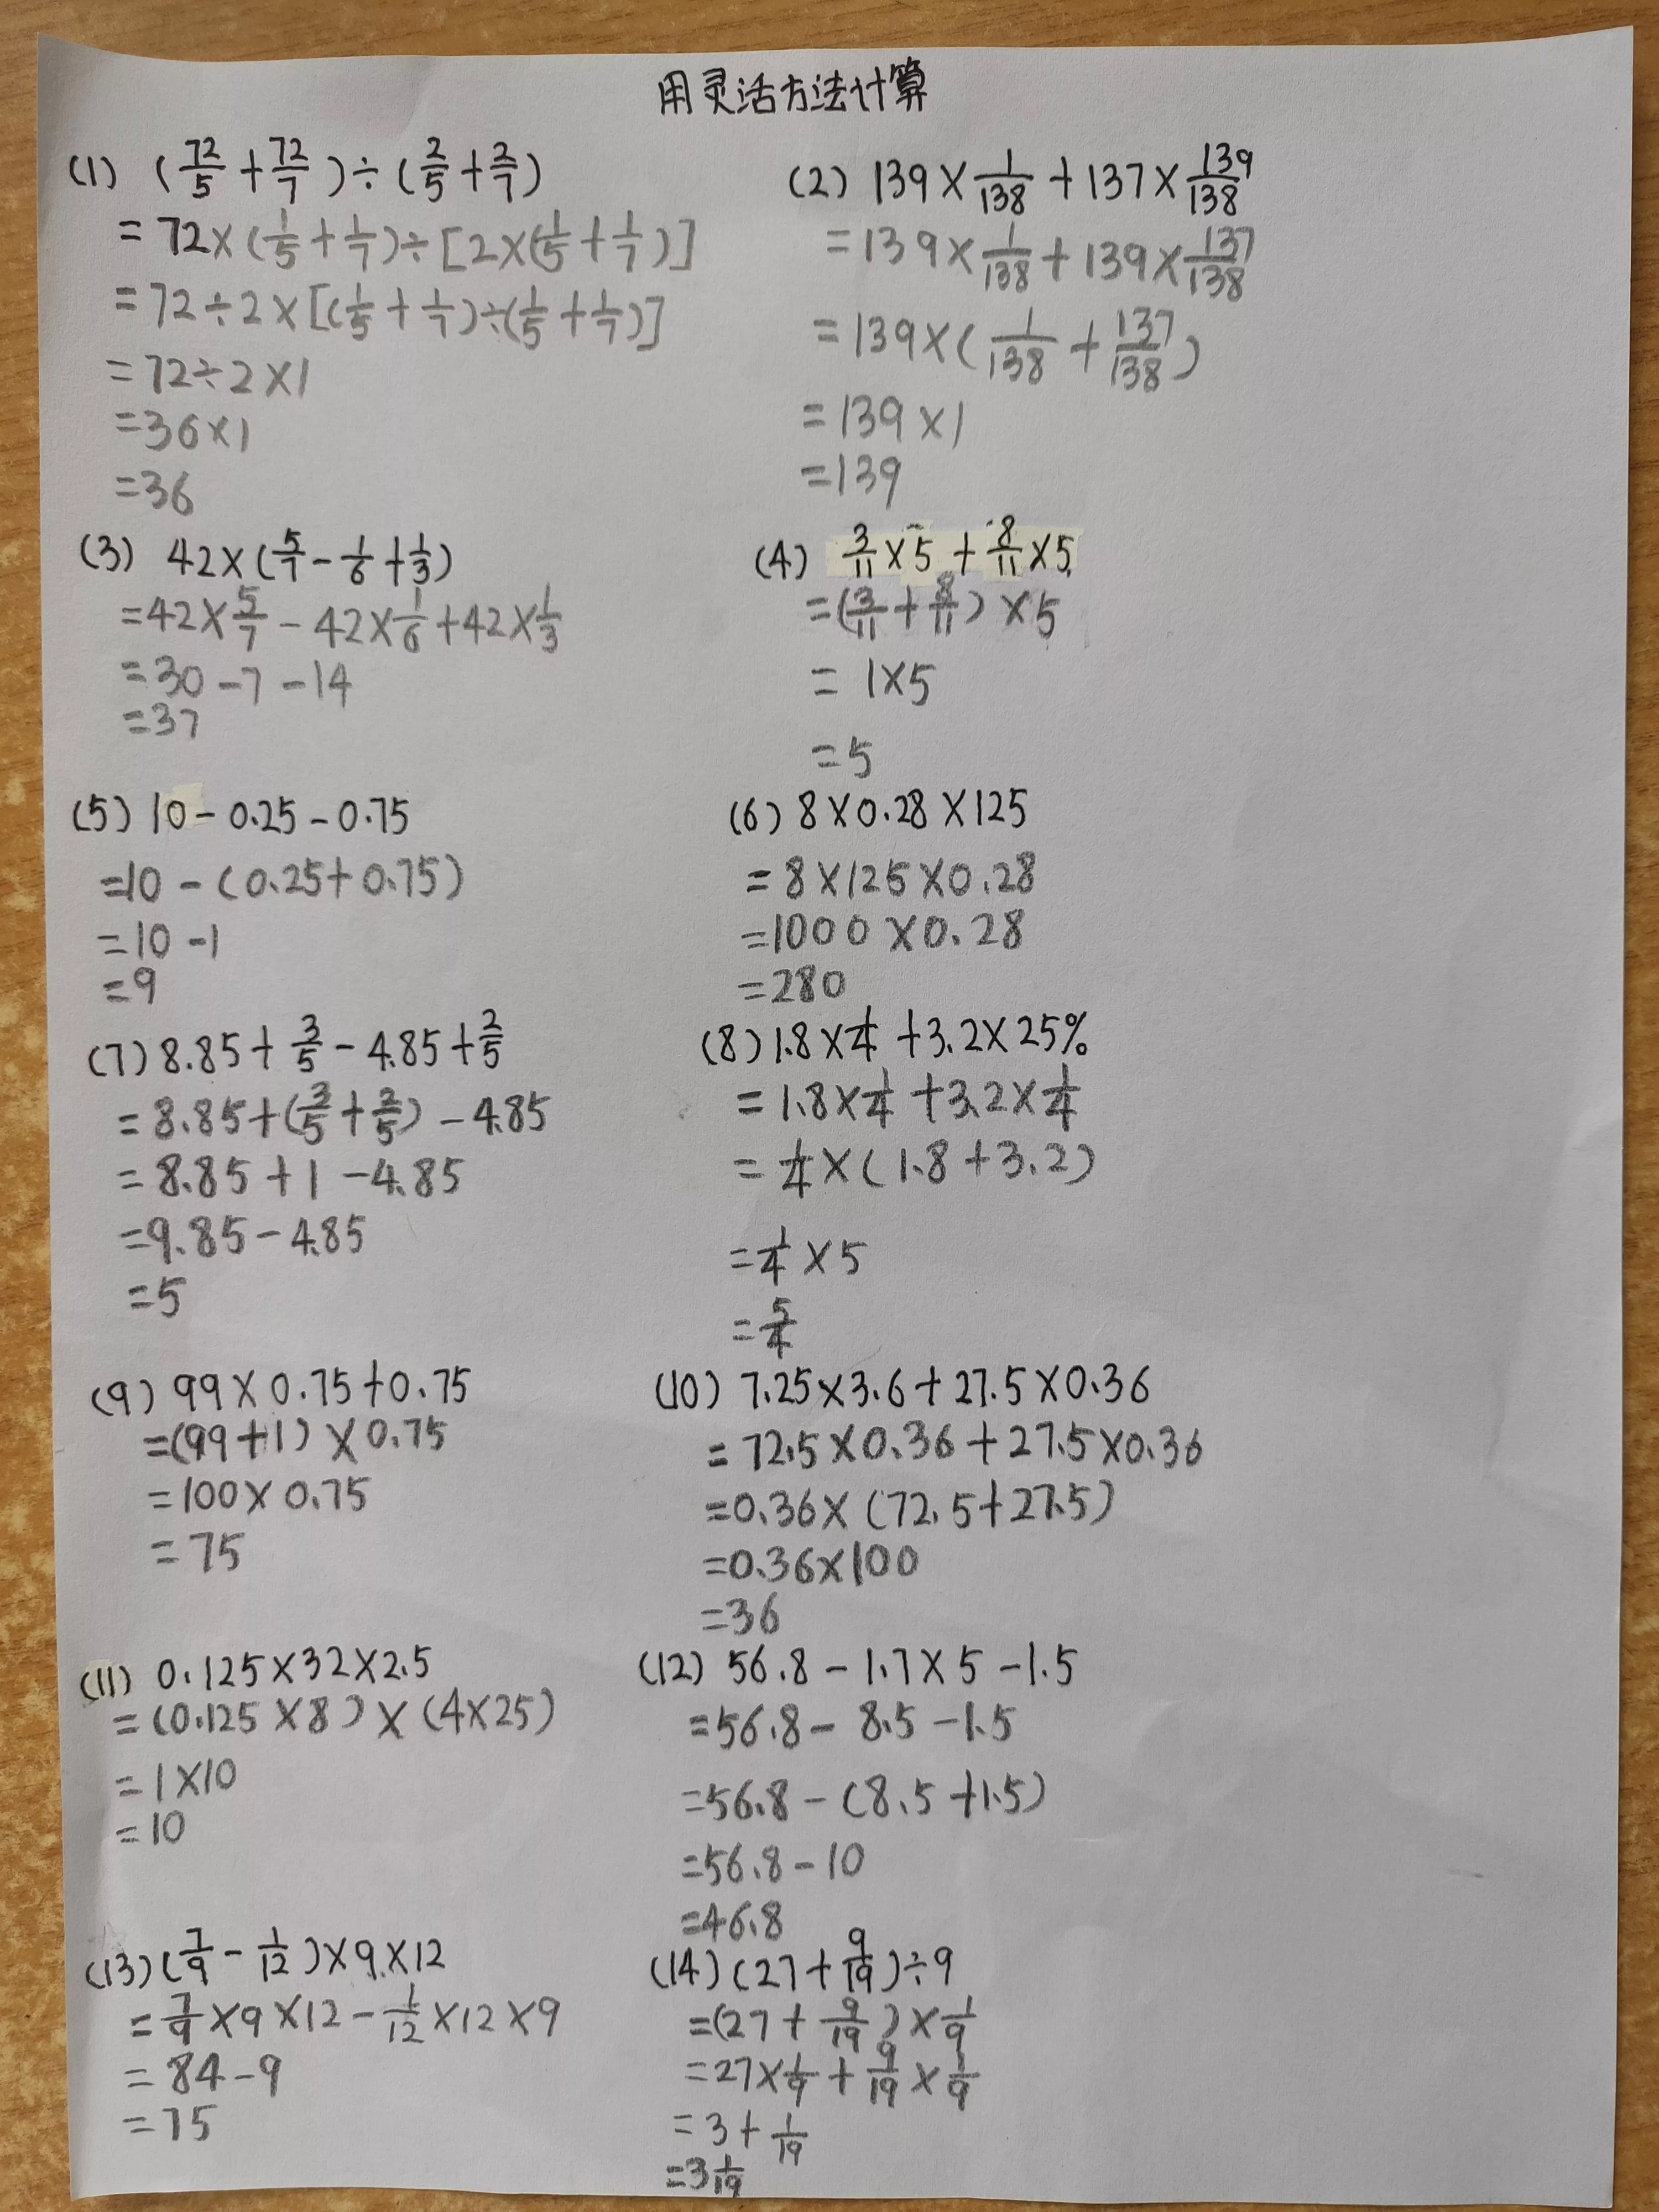 用灵活方法计算
(1) (72/5 + 72/7) ÷ (2/5 + 2/7)
= 72 × (1/5 + 1/7) ÷ [2 × (1/5 + 1/7)]
= 72 ÷ 2 × [(1/5 + 1/7) ÷ (1/5 + 1/7)]
= 72 ÷ 2 × 1
= 36 × 1
= 36
(2) 139 × 1/138 + 137 × 139/138
= 139 × 1/138 + 139 × 137/138
= 139 × (1/138 + 137/138)
= 139 × 1
= 139
(3) 42 × (5/7 - 1/6 + 1/3)
= 42 × 5/7 - 42 × 1/6 + 42 × 1/3
= 30 - 7 - 14
= 37
(4) 3/11 × 5 + 8/11 × 5
= (3/11 + 8/11) × 5
= 1 × 5
= 5
(5) 10 - 0.25 - 0.75
= 10 - (0.25 + 0.75)
= 10 - 1
= 9
(6) 8 × 0.28 × 125
= 8 × 125 × 0.28
= 1000 × 0.28
= 280
(7) 8.85 + 3/5 - 4.85 + 2/5
= 8.85 + (3/5 + 2/5) - 4.85
= 8.85 + 1 - 4.85
= 9.85 - 4.85
= 5
(8) 1.8 × 1/4 + 3.2 × 25%
= 1.8 × 1/4 + 3.2 × 1/4
= 1/4 × (1.8 + 3.2)
= 1/4 × 5
= 5/4
(9) 99 × 0.75 + 0.75
= (99 + 1) × 0.75
= 100 × 0.75
= 75
(10) 7.25 × 3.6 + 27.5 × 0.36
= 72.5 × 0.36 + 27.5 × 0.36
= 0.36 × (72.5 + 27.5)
= 0.36 × 100
= 36
(11) 0.125 × 32 × 2.5
= (0.125 × 8) × (4 × 25)
= 1 × 10
= 10
(12) 56.8 - 1.7 × 5 - 1.5
= 56.8 - 8.5 - 1.5
= 56.8 - (8.5 + 1.5)
= 56.8 - 10
= 46.8
(13) (7/9 - 1/12) × 9 × 12
= 7/9 × 9 × 12 - 1/12 × 12 × 9
= 84 - 9
= 75
(14) (27 + 9/19) ÷ 9
= (27 + 9/19) × 1/9
= 27 × 1/9 + 9/19 × 1/9
= 3 + 1/19
= 3 1/19